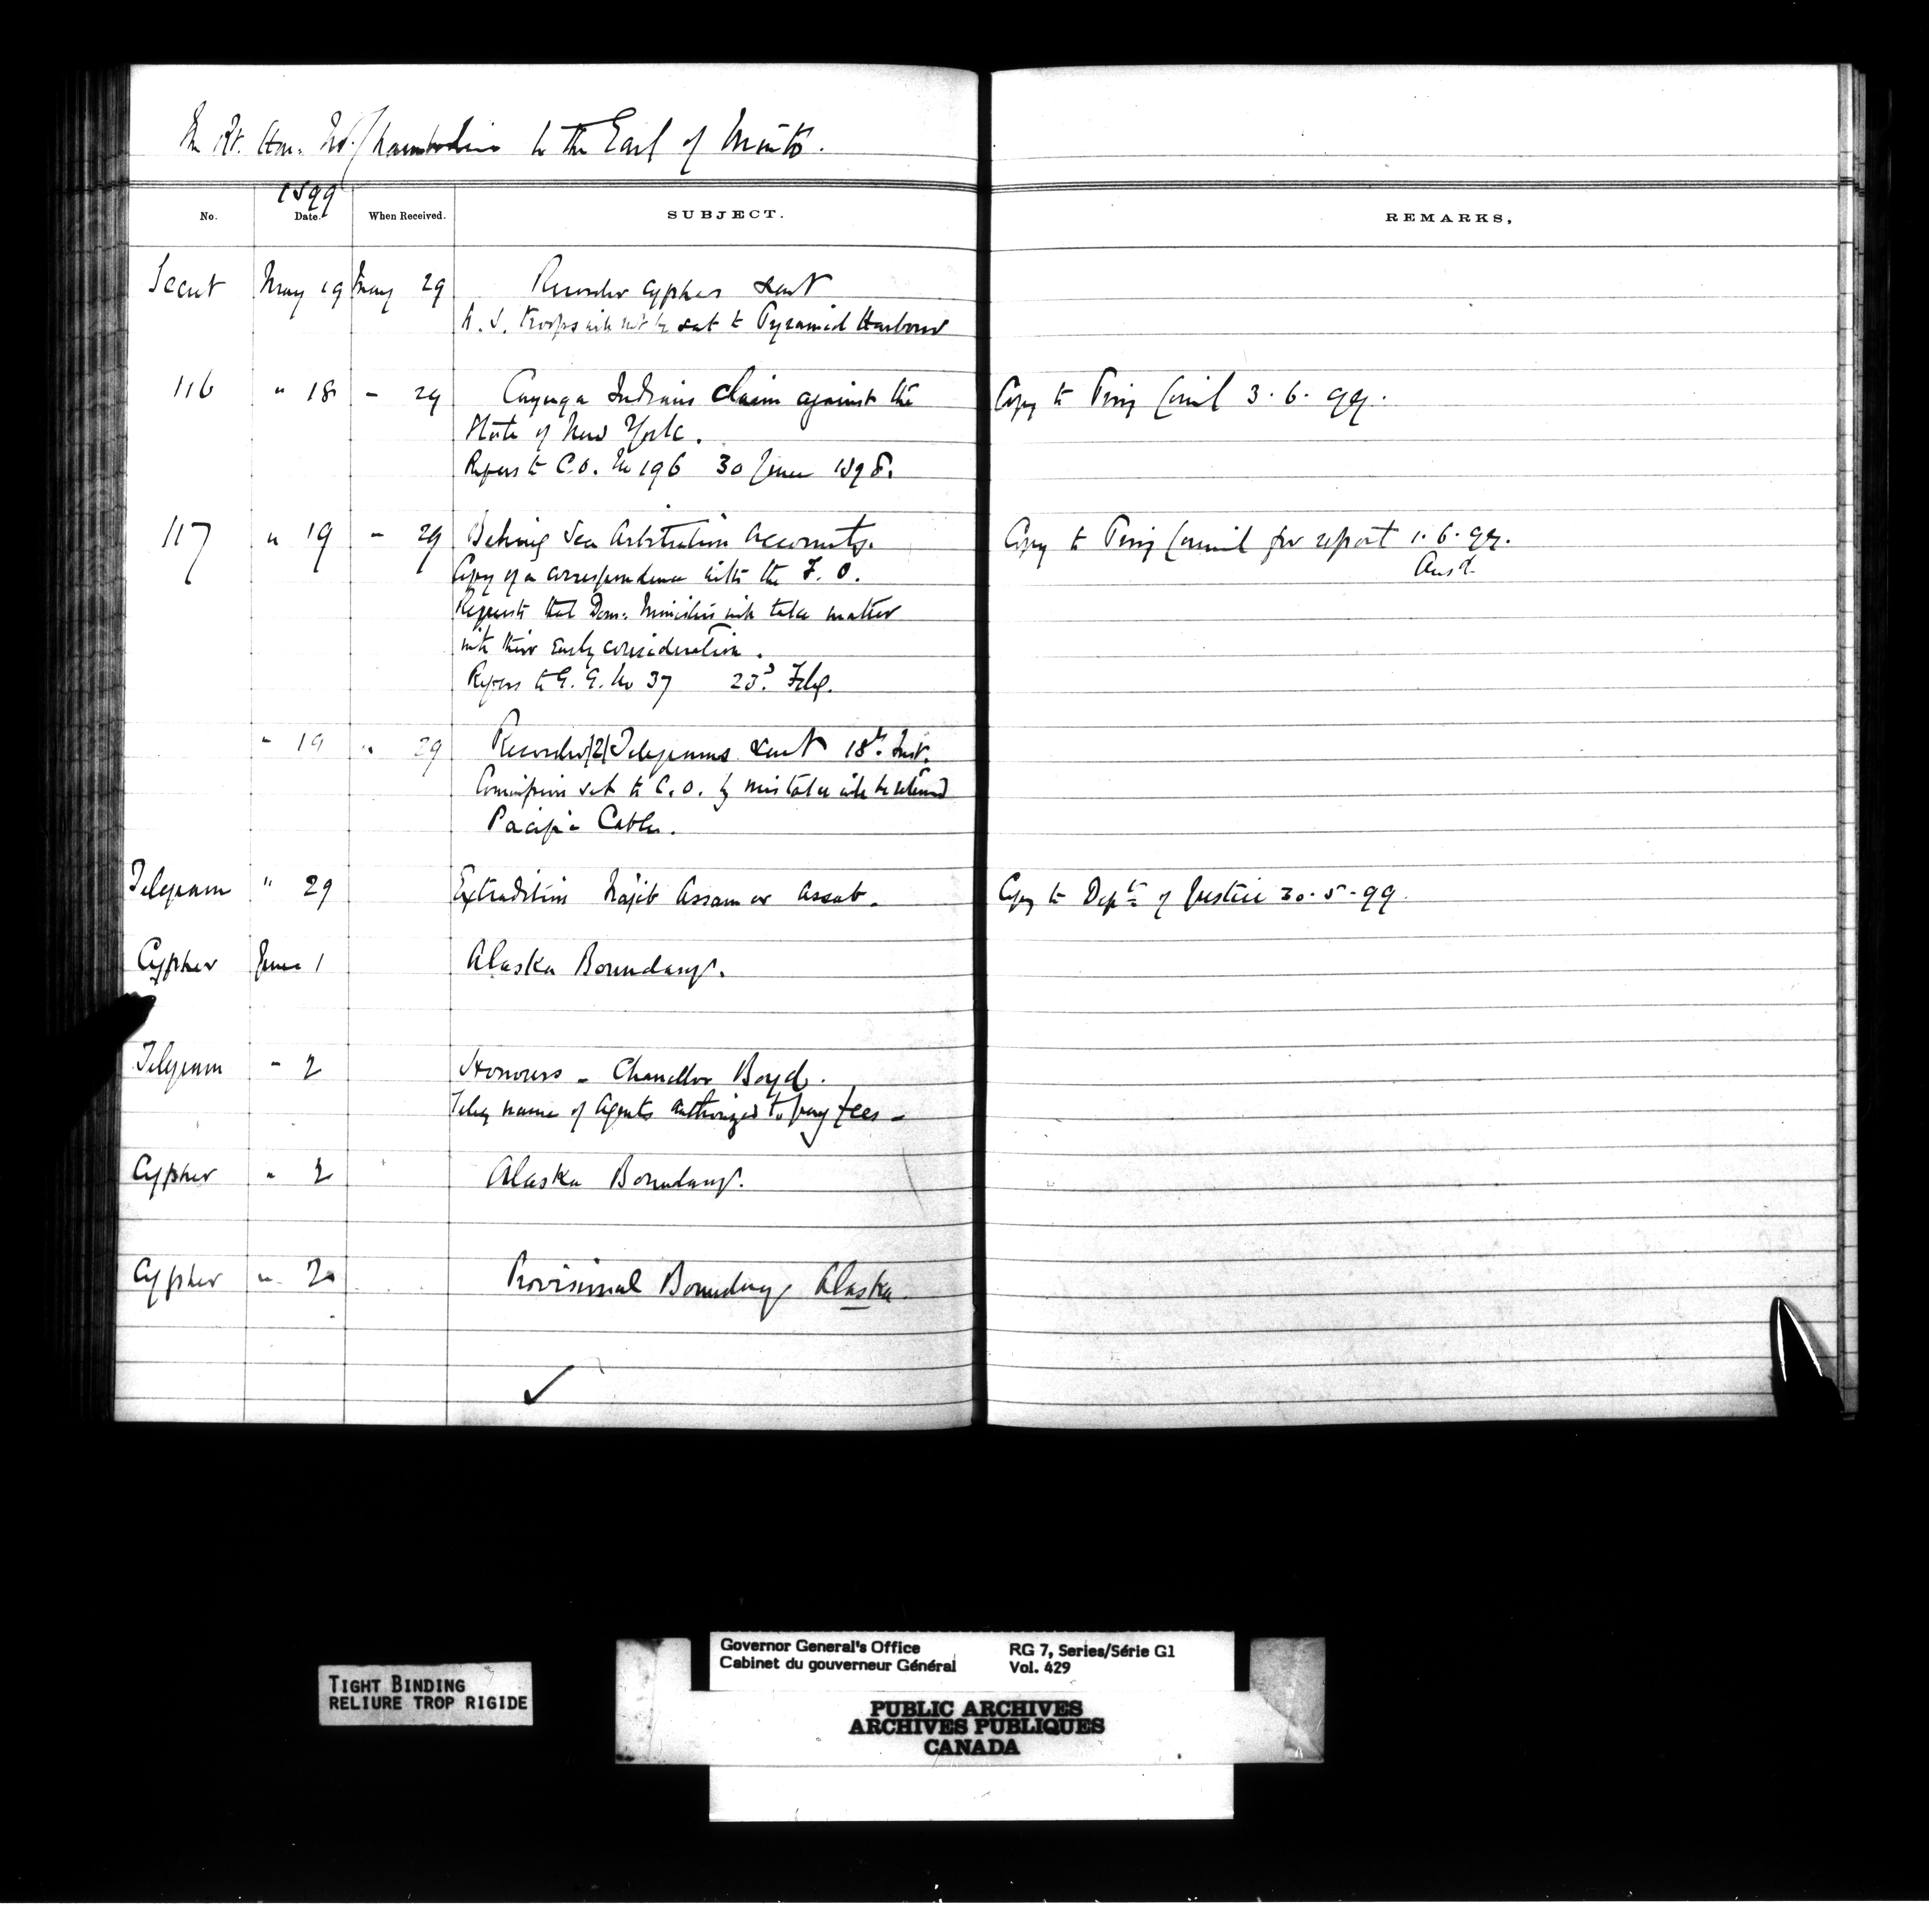 The Rt. Hon. Mr. Chamberlain to the Earl of Minto.
1899
No. Date. When Received. SUBJECT. REMARKS,
Secret May 19 May 29 Records cypher sent
U.S. troops will not be sent to Pyramid Harbour
116 " 18 - 29 Cayuga Indians claim against the Copy to Privy Council 3.6.99.
State of New York.
Refers to C.O. No 196 30 June 1898.
117 " 19 - 29 Behring Sea Arbitration Accounts. Copy to Privy Council for report 1.6.99.
Copy of a correspondence with the F.O. Ansd.
Requests that Dom. Ministers will take matter
into their early consideration.
Refers to G.G. No 37 23d. Feby.
" 19 " 29 Records (2) Telegrams sent 18th Inst.
sent to C.O. by mistake will be returned
Pacific Cable.
Telegram " 29 Extradition Najib Assam or Assab. Copy to Dept of Justice 30-5-99.
Cypher June 1 Alaska Boundary.
Telegram - 2 Honours - Chancellor Boyd.
Teleg name of Agents authorized to pay fees -
Cypher " 2 Alaska Boundary.
Cypher " 20 Provisional Boundary Alaska.
TIGHT BINDING
RELIURE TROP RIGIDE
Governor General's Office RG 7, Series/Série G1
Cabinet du gouverneur Général Vol. 429
PUBLIC ARCHIVES
ARCHIVES PUBLIQUES
CANADA